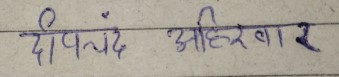 दीपचंद अहिरवार